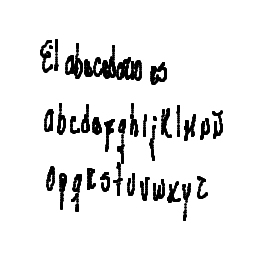 El abecedario es
abcdefghijKlMnÑ
opqRstuvwxyz